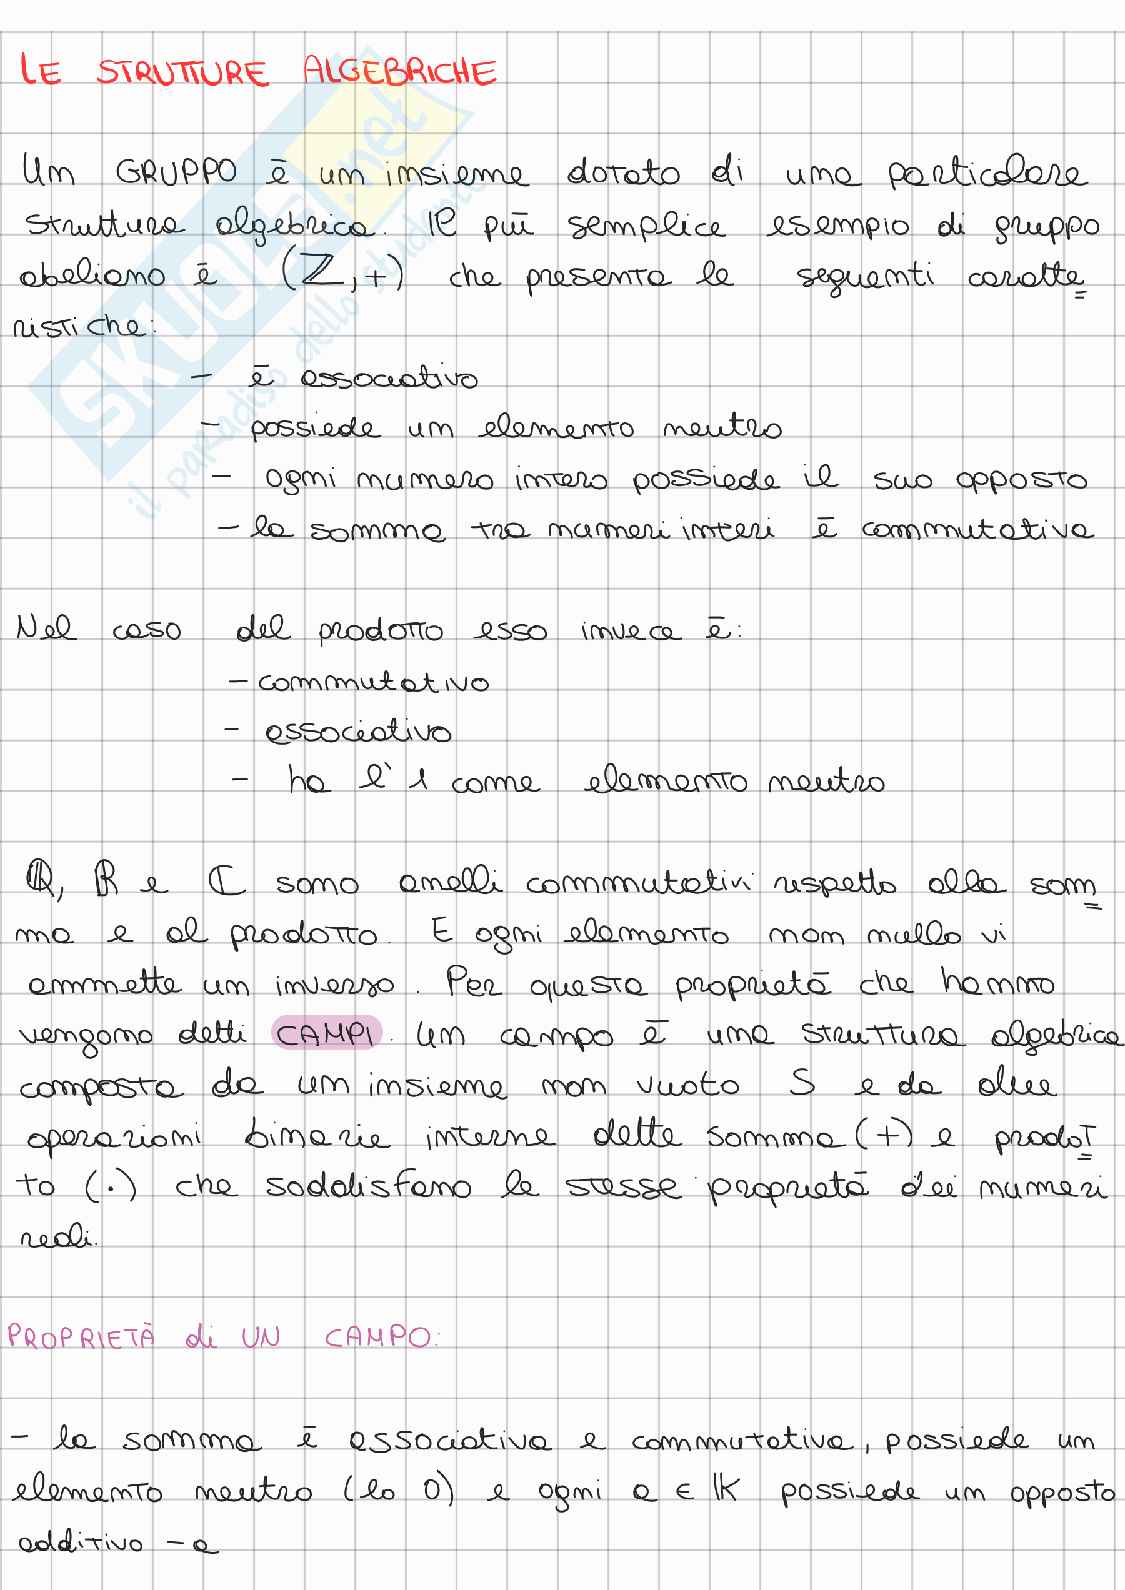 LE STRUTTURE ALGEBRICHE
Un GRUPPO è un insieme dotato di una particolare
struttura algebrica. Il più semplice esempio di gruppo
abeliano è (ℤ, +) che presenta le seguenti caratte=
ristiche:
- è associativo
- possiede un elemento neutro
- ogni numero intero possiede il suo opposto
- la somma tra numeri interi è commutativa
Nel caso del prodotto esso invece è:
- commutativo
- associativo
- ha l'1 come elemento neutro
ℚ, ℝ e ℂ sono anelli commutativi rispetto alla som=
ma e al prodotto. E ogni elemento non nullo vi
ammette un inverso. Per questa proprietà che hanno
vengono detti CAMPI. Un campo è una struttura algebrica
composta da un insieme non vuoto S e da due
operazioni binarie interne dette somma (+) e prodot=
to (·) che soddisfano le stesse proprietà dei numeri
reali.
PROPRIETÀ di UN CAMPO:
- la somma è associativa e commutativa, possiede un
elemento neutro (lo 0) e ogni a ∈ 𝕂 possiede un opposto
additivo -a
SKUOLA.net
il paradiso dello studente